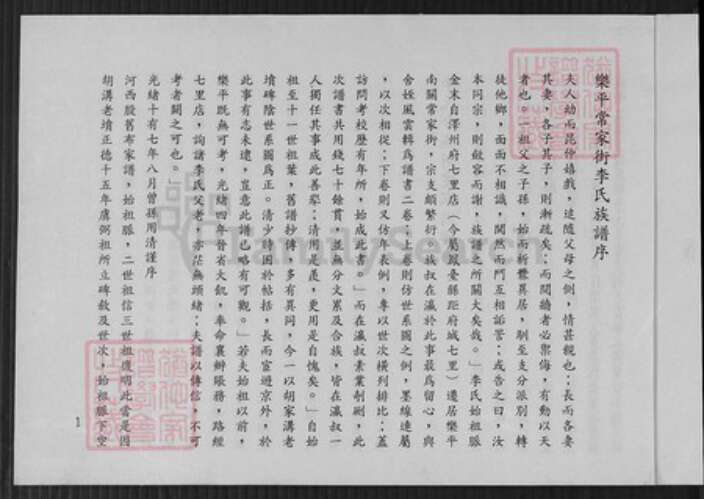 樂平常家街李氏族譜序
夫人幼而昆仲嬉戲，逮隨父母之側，情甚親也；長而各妻
其妻，各子其子，則漸疏矣；而鬩牆者必禦侮，有動以天
者也。一祖父之子孫，始而析爨異居，馴至支分派別，轉
徙他鄉，面面不相識，鬨然而鬥互相詬詈；或告之曰，汝
本同宗，則斂容而謝，族譜之所關大矣哉。」李氏始祖脈
金末自澤州府七里店（今屬鳳臺縣距府城七里）遷居樂平
南關常家街，宗支頗繁衍。族叔在瀛於此事最為留心，與
舍姪風雲輯為譜書二卷；上卷則仿世系圖之例，墨線連屬
，以次相從；下卷則又仿年表例，專以世次橫列排比；蓋
訪問考校歷有年所，始成此書。」而在瀛叔素業剞劂，此
次譜書共用錢七十餘貫，並無分文累及合族，皆在瀛叔一
人獨任其事成此善舉；清用是羨，更用是自愧矣。」自始
祖至十一世祖葉，舊譜抄傳，多有異同，今一以胡家溝老
墳碑陰世系圖為正。清少時困於帖括，長而宦遊京外，於
此事有志未逮，豈意此譜已略有可觀。」若夫始祖以前，
樂平既無可考，光緒四年晉省大飢，奉命襄辦賑務，路經
七里店，詢諸李氏父老，亦茫無頭緒；夫譜以傳信，不可
考者闕之可也。
光緒十有七年八月曾孫用清謹序
河西股舊布家譜，始祖脈，二世祖信三世祖復明此當是因
胡溝老墳正德十五年廣弼祖所立碑敘及世次，始祖脈下空
1
FamilySearch